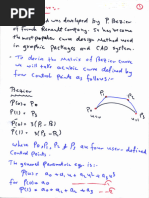 was developed was by P. Bezier
of French Renault Company. So has become
the most popular curve design Method used
in graphic packages and CAD system.
To derive the Matrix of Bezier curve
we will take cubic curve defined by
four control points as follows:-
P(0) = P0
P(1) = P3
P'(0) = 3(P1 - P0)
P'(1) = 3(P3 - P2)
P0
P1
P2
P3
where P0, P1, P2 & P3 are four user-defined
Control points.
The general parametric eqn is:-
P(u) = a0 + a1u + a2u² + a3u³
for P(0) = a0
P(1) = a0 + a1 + a2 + a3